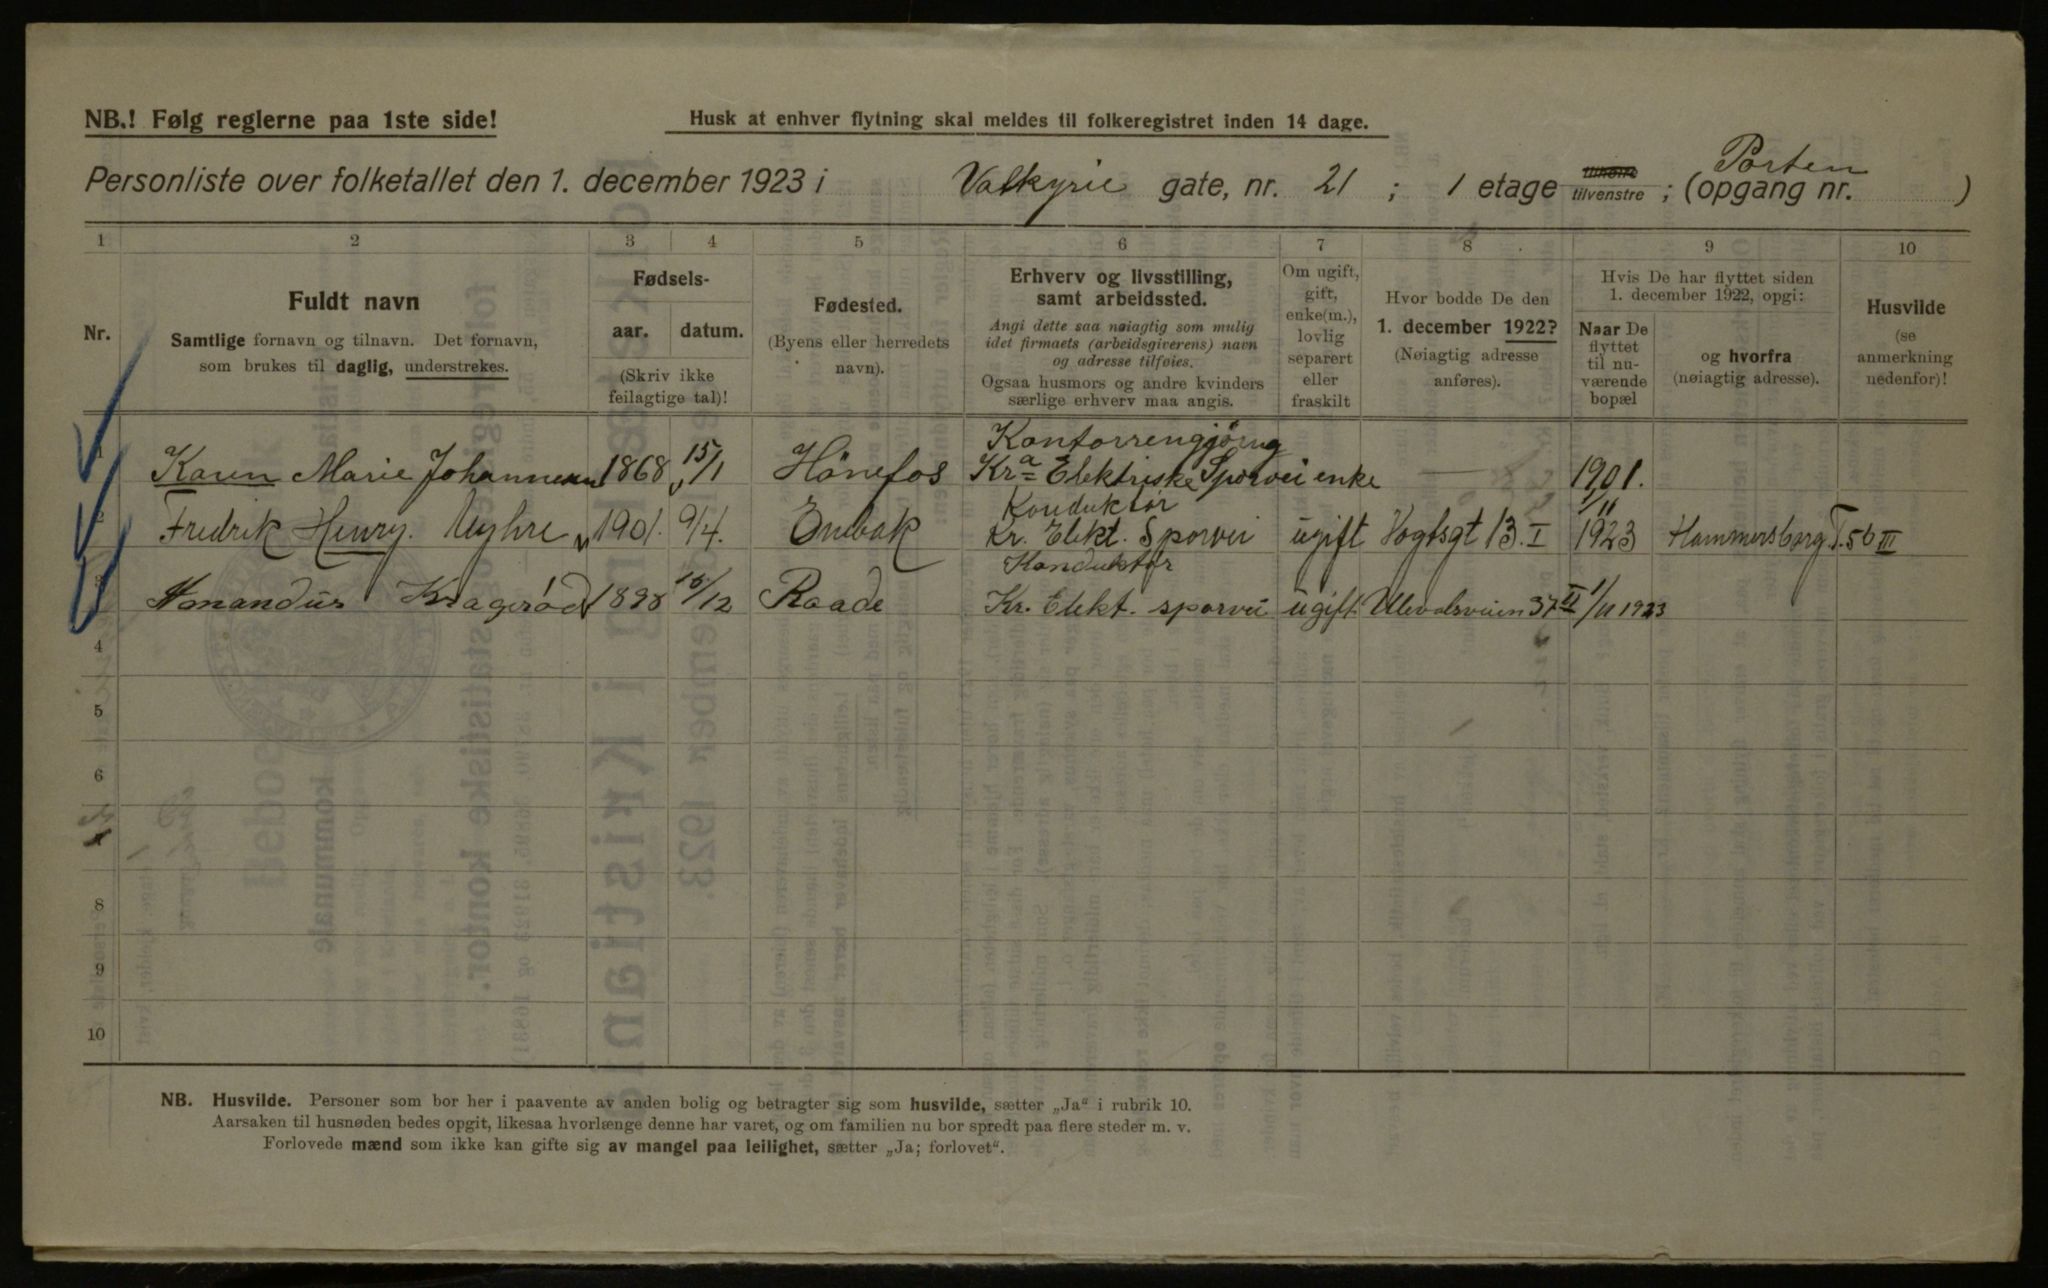 NB.! Følg reglerne paa 1ste side!
Husk at enhver flytning skal meldes til folkeregistret inden 14 dage.
Personliste over folketallet den 1. december 1923 i Valkyrie gate, nr. 21 ; 1 etage tilhøire tilvenstre ; (opgang nr. Porten )
1 2 3 4 5 6 7 8 9 10
Nr.
Fuldt navn
Samtlige fornavn og tilnavn. Det fornavn,
som brukes til daglig, understrekes.
Fødsels-
aar. datum.
(Skriv ikke
feilagtige tal)!
Fødested.
(Byens eller herredets
navn).
Erhverv og livsstilling,
samt arbeidssted.
Angi dette saa nøiagtig som mulig
idet firmaets (arbeidsgiverens) navn
og adresse tilføies.
Ogsaa husmors og andre kvinders
særlige erhverv maa angis.
Om ugift,
gift,
enke(m.),
lovlig
separert
eller
fraskilt
Hvor bodde De den
1. december 1922?
(Nøiagtig adresse
anføres).
Hvis De har flyttet siden
1. december 1922, opgi:
Naar De
flyttet
til nu-
værende
bopæl
og hvorfra
(nøiagtig adresse).
Husvilde
(se
anmerkning
nedenfor)!
Kontorrengjøring
1 Karen Marie Johannesen 1868 15/1 Hönefos Kra Elektriske Sporvei enke — 1901.
Konduktør 1/11
2 Fredrik Henry. Myhre 1901. 9/4. Enebak Kr. Elekt. Sporvei ugift Vogtsgt 13. I 1923 Hammersborg T. 56 III
Konduktør
3 Amandus Kragerød 1898 16/12 Raade Kr. Elekt. sporvei ugift Ullevalsveien 37 II 1/11 1923
4
5
6
7
8
9
10
NB. Husvilde. Personer som bor her i paavente av anden bolig og betragter sig som husvilde, sætter „Ja" i rubrik 10.
Aarsaken til husnøden bedes opgit, likesaa hvorlænge denne har varet, og om familien nu bor spredt paa flere steder m. v.
Forlovede mænd som ikke kan gifte sig av mangel paa leilighet, sætter „Ja; forlovet".